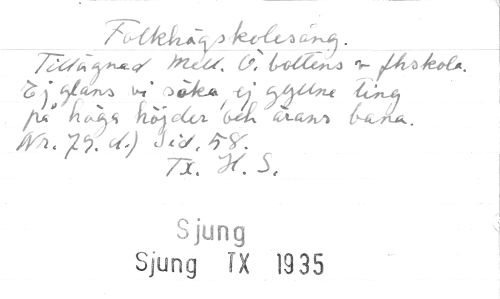 Folkhögskolesång.
Tillägnad Mell. Ö. bottens v fhskola.
Ej glans vi söka, ej gyllne ting
på höga höjder och ärans bana.
Nr. 79. d.) Sid. 58.
Tx. H. S.
Sjung
Sjung TX 1935